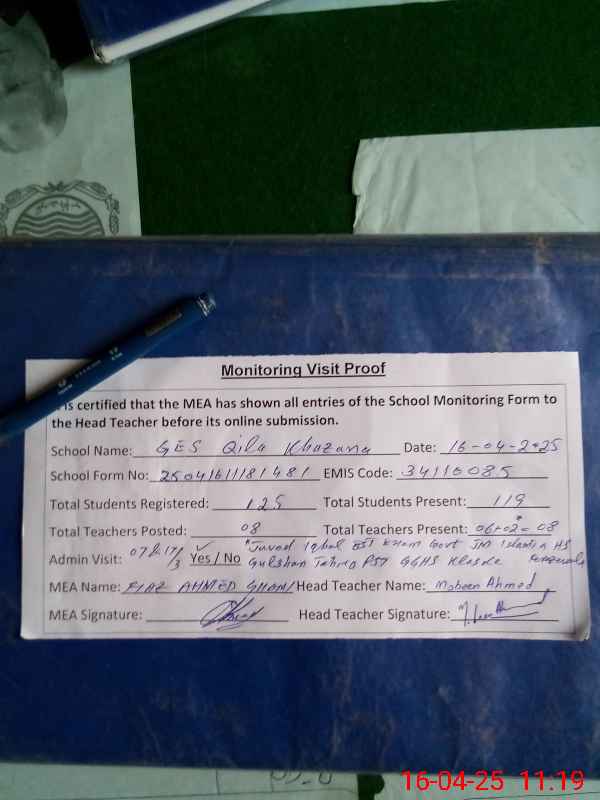 Monitoring Visit Proof
is certified that the MEA has shown all entries of the School Monitoring Form to
the Head Teacher before its online submission.
School Name: GES Qila Khazana Date: 16-04-2025
School Form No: 2504161181481 EMIS Code: 34110085
Total Students Registered: 125 Total Students Present: 119
Total Teachers Posted: 08 Total Teachers Present: 06+02=08
Admin Visit: 07 & 17/3 Yes / No Javed Iqbal EST Exam Govt JM Islamia HS
Gulshan Tahira PST GGHS Klaske
MEA Name: FIAZ AHMED GHANI Head Teacher Name: Mobeen Ahmed
MEA Signature: Head Teacher Signature:
16-04-25 11.19